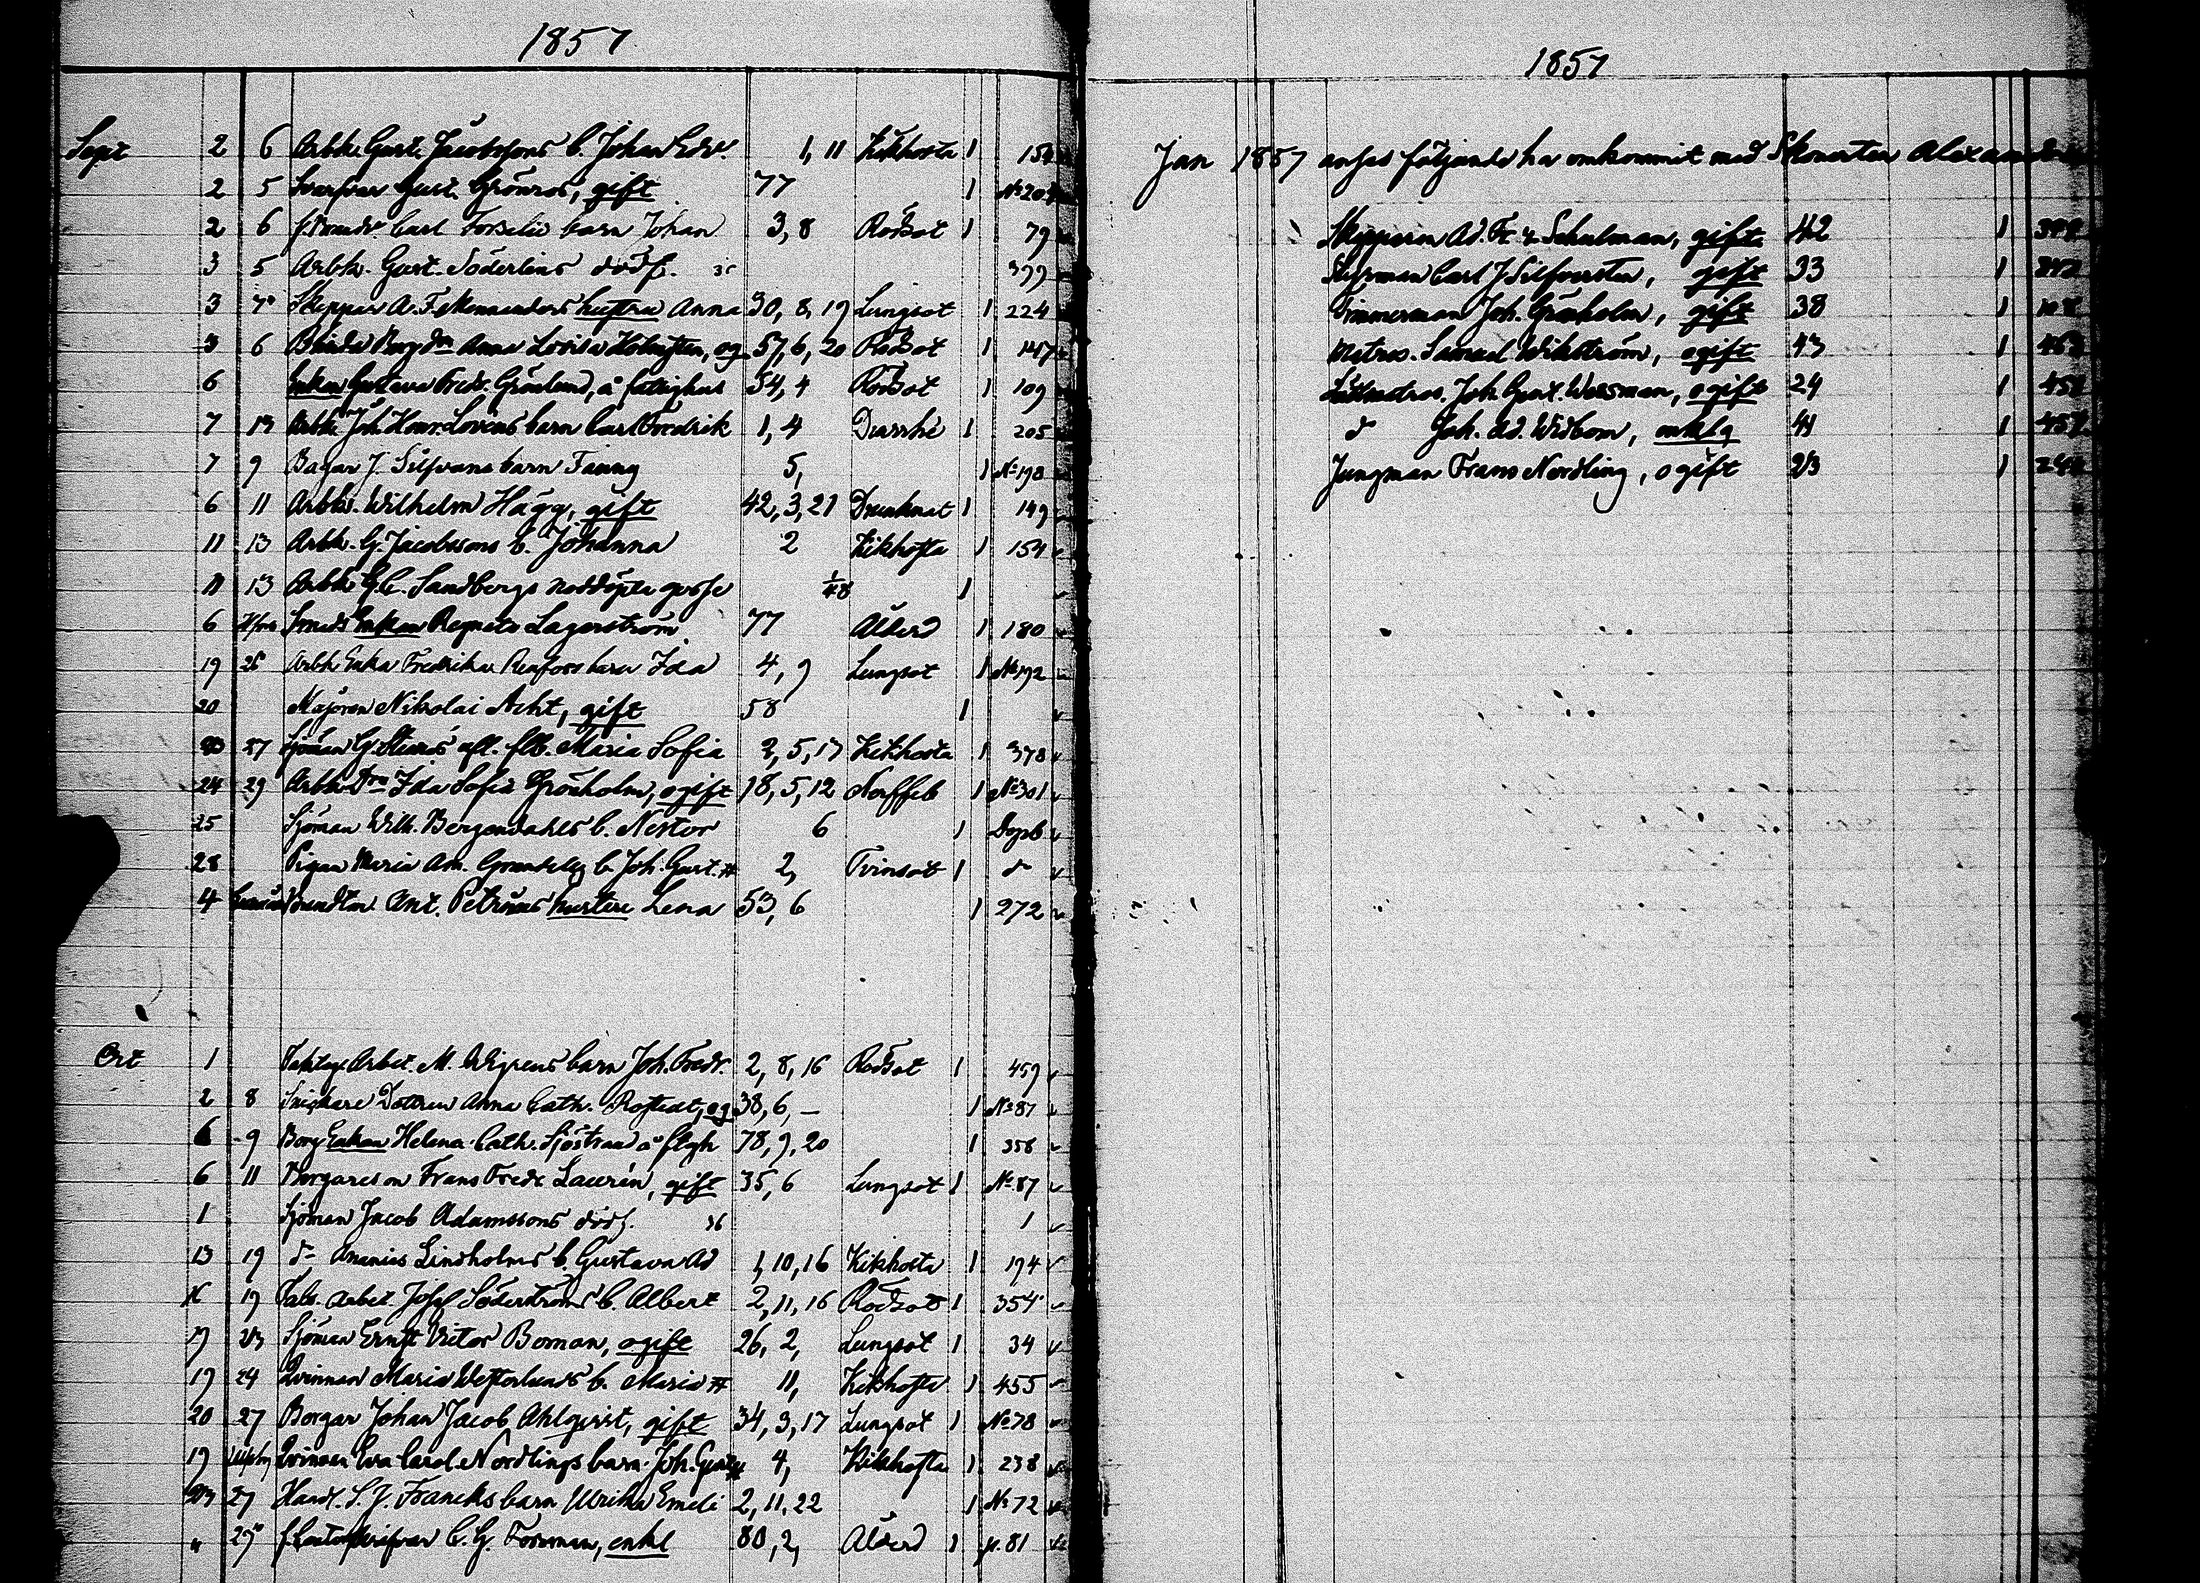 1857
Sept 2 6 Arbk. Gust. Jacobssons b. Johan Edv. 1, 11 Kikhosta 1 154
2 5 Svarfvar Gust. Grönros, gift 77 1 No 207
2 6 Carl Forselii barn Johan 3, 8 Rödsot 1 79
3 5 Arbk. Gust. Söderlins dödf. 399
3 Skeppar A. F. hustru Anna 30, 8, 19 Lungsot 1 224
3 6 Anna Lovisa Holmsten, og 57, 6, 20 Rödsot 1 147
6 Enkan Gustava Fredr. Grönlund, å fattighus 54, 4 Rödsot 1 109
7 13 Arbk. Joh. Henr. Lovens barn Carl Fredrik 1, 4 Diarrhé 1 205
7 9 Bagar J. Silfvans barn Fanny 5, 1 No 198
6 11 Arbk. Wilhelm Hägg, gift 42, 3, 21 Drunknat 1 149
11 13 Arbk. G. Jacobssons b. Johanna 2 Kikhosta 1 154
11 13 Arbk. G. C. Sandbergs nöddöpte gosse 1/48 1
6 Smeds Enkan Regneta Lagerström 77 Ålderd 1 180
19 25 Arbk Enka Fredrika Renfors barn Ida 4, 9 Lungsot 1 No 192
20 Majoren Nikolai Acht, gift 58 1
20 27 Sjöman G. afl. flb. Maria Sofia 2, 5, 17 Kikhosta 1 378
24 29 Arbk. Dtr Ida Sofia Grönholm, ogift 18, 5, 12 Nerffeb 1 No 301
25 Sjöman Wilh. Bergendahls b. Nestor 6 1 Dopb
28 Pigan Maria b. Joh. Gust. # 2, Tvinsot 1 do
4 Ant. hustru Lena 53, 6 1 272
Oct 1 Arbet. M. Wirens barn Joh. Fredr. 2, 8, 16 Rödsot 1 459
2 8 Snickare Dottren Anna Cath. og 38, 6, – 1 No 87
6 9 Borg Enkan Helena Cath. Sjöstrand å ftgh 78, 9, 20 1 358
6 11 Borgareson Frans Fredr. Laurén, gift 35, 6 Lungsot 1 No 87
1 Sjöman Jacob Adamssons dödf. 1
13 19 do Ananias Lindholms b. Gustava Ad 1, 10, 16 Kikhosta 1 194
16 19 Fab. Arbet. Josef Söderströms b. Albert 2, 11, 16 Rödsot 1 354
19 23 Sjöman Ernst Victor Boman, ogift 26, 2, Lungsot 1 34
19 24 Qvinnan Maria Westerlunds b. Maria # 11, Kikhosta 1 455
20 27 Borgar Johan Jacob Ahlqvist, gift 34, 3, 17 Lungsot 1 No 78
19 Qvinnan Eva Carol. Nordlings barn Joh. Gust # 4, Kikhosta 1 238
23 27 Handl. S. J. Francks barn Ulrika Emeli 2, 11, 22 1 No 72
" 29 C. G. Forsman, enkl 80, 2, Ålderd 1 p. 81
1857
Jan 1857 anses följande ha omkommit med Skonerten Alexandra
Skepparen Ad. Fr. v. Schulman, gift 42 1 399
Styrman Carl J Silfversten, gift 33 1
Timmerman Joh. Grönholm, gift 38 1
Matros. Samuel Wikström, ogift 43 1 463
Lättmatros. Joh. Gust. Wessman, ogift 24 1 451
do Joh. Ad. Widbom, enklg 41 1 457
Jungman Frans Nordling, ogift 23 1